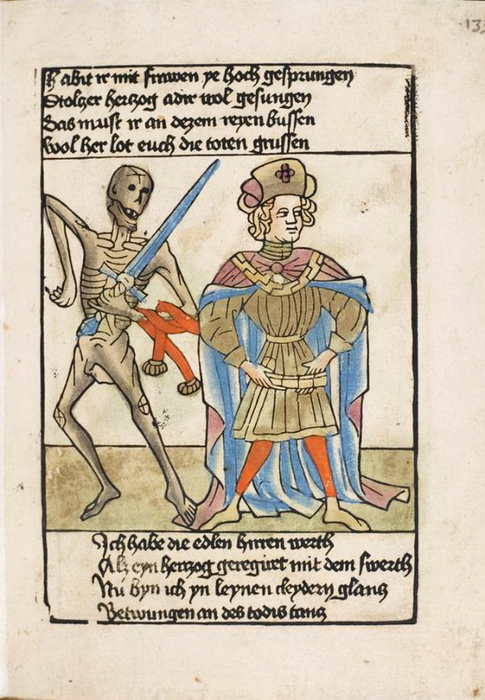 133
Habit ir mit frawen ye hoch gesprungen
Stolzer herzog adir wol gesungen
Das must ir an dezem reyen bussen
Wol her lot euch die toten grussen
Ich habe die edlen hirren werth
Alz eyn herzog geregiret mit dem swerth
Nu byn ich yn leynen cleydern glantz
Betwungen an des todis tantz